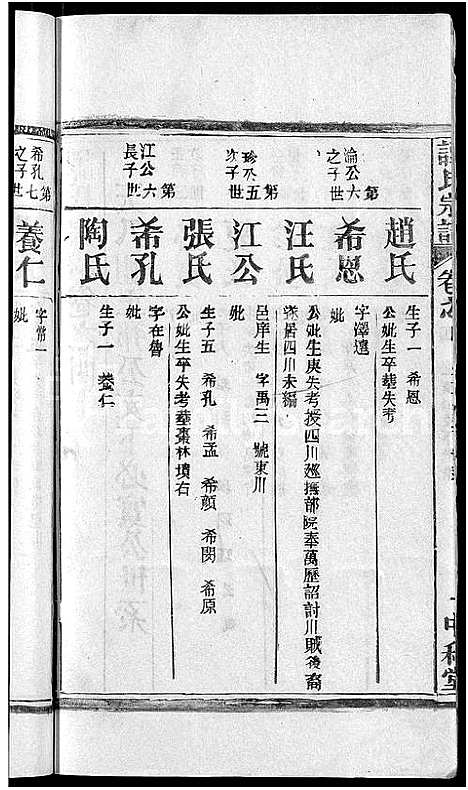 氏宗譜
中和堂
趙氏
生子一 希恩
公妣生卒塟失考
第六世
淪公之子
希恩
字澤遠
妣
汪氏
公妣生庚失考授四川廵撫部院奉萬歷詔討川賊後裔
居四川未編
第五世
珍公次子
江公
邑庠生 字禹三 號東川
妣
張氏
生子五 希孔 希孟 希顏 希閔 希原
公妣生卒失考塟棗林墳右
第六世
江公長子
希孔
字在魯
妣
陶氏
生子一 養仁
第七世
希孔之子
養仁
字常一
妣